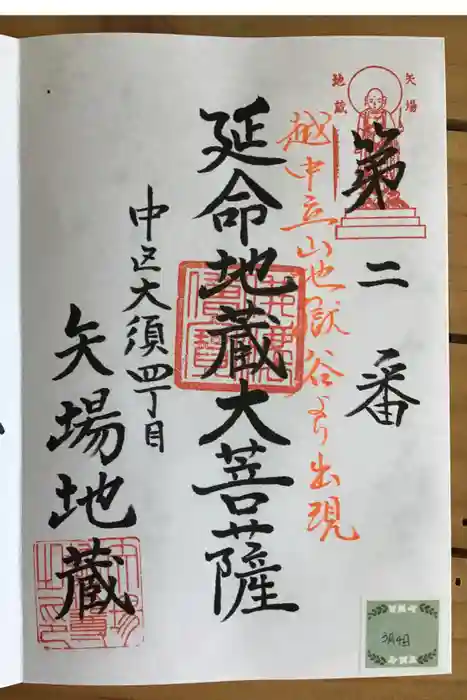 矢場
地蔵
第二番
越中立山地獄谷より出現
延命地蔵大菩薩
中区大須四丁目
矢場地蔵
3月4日